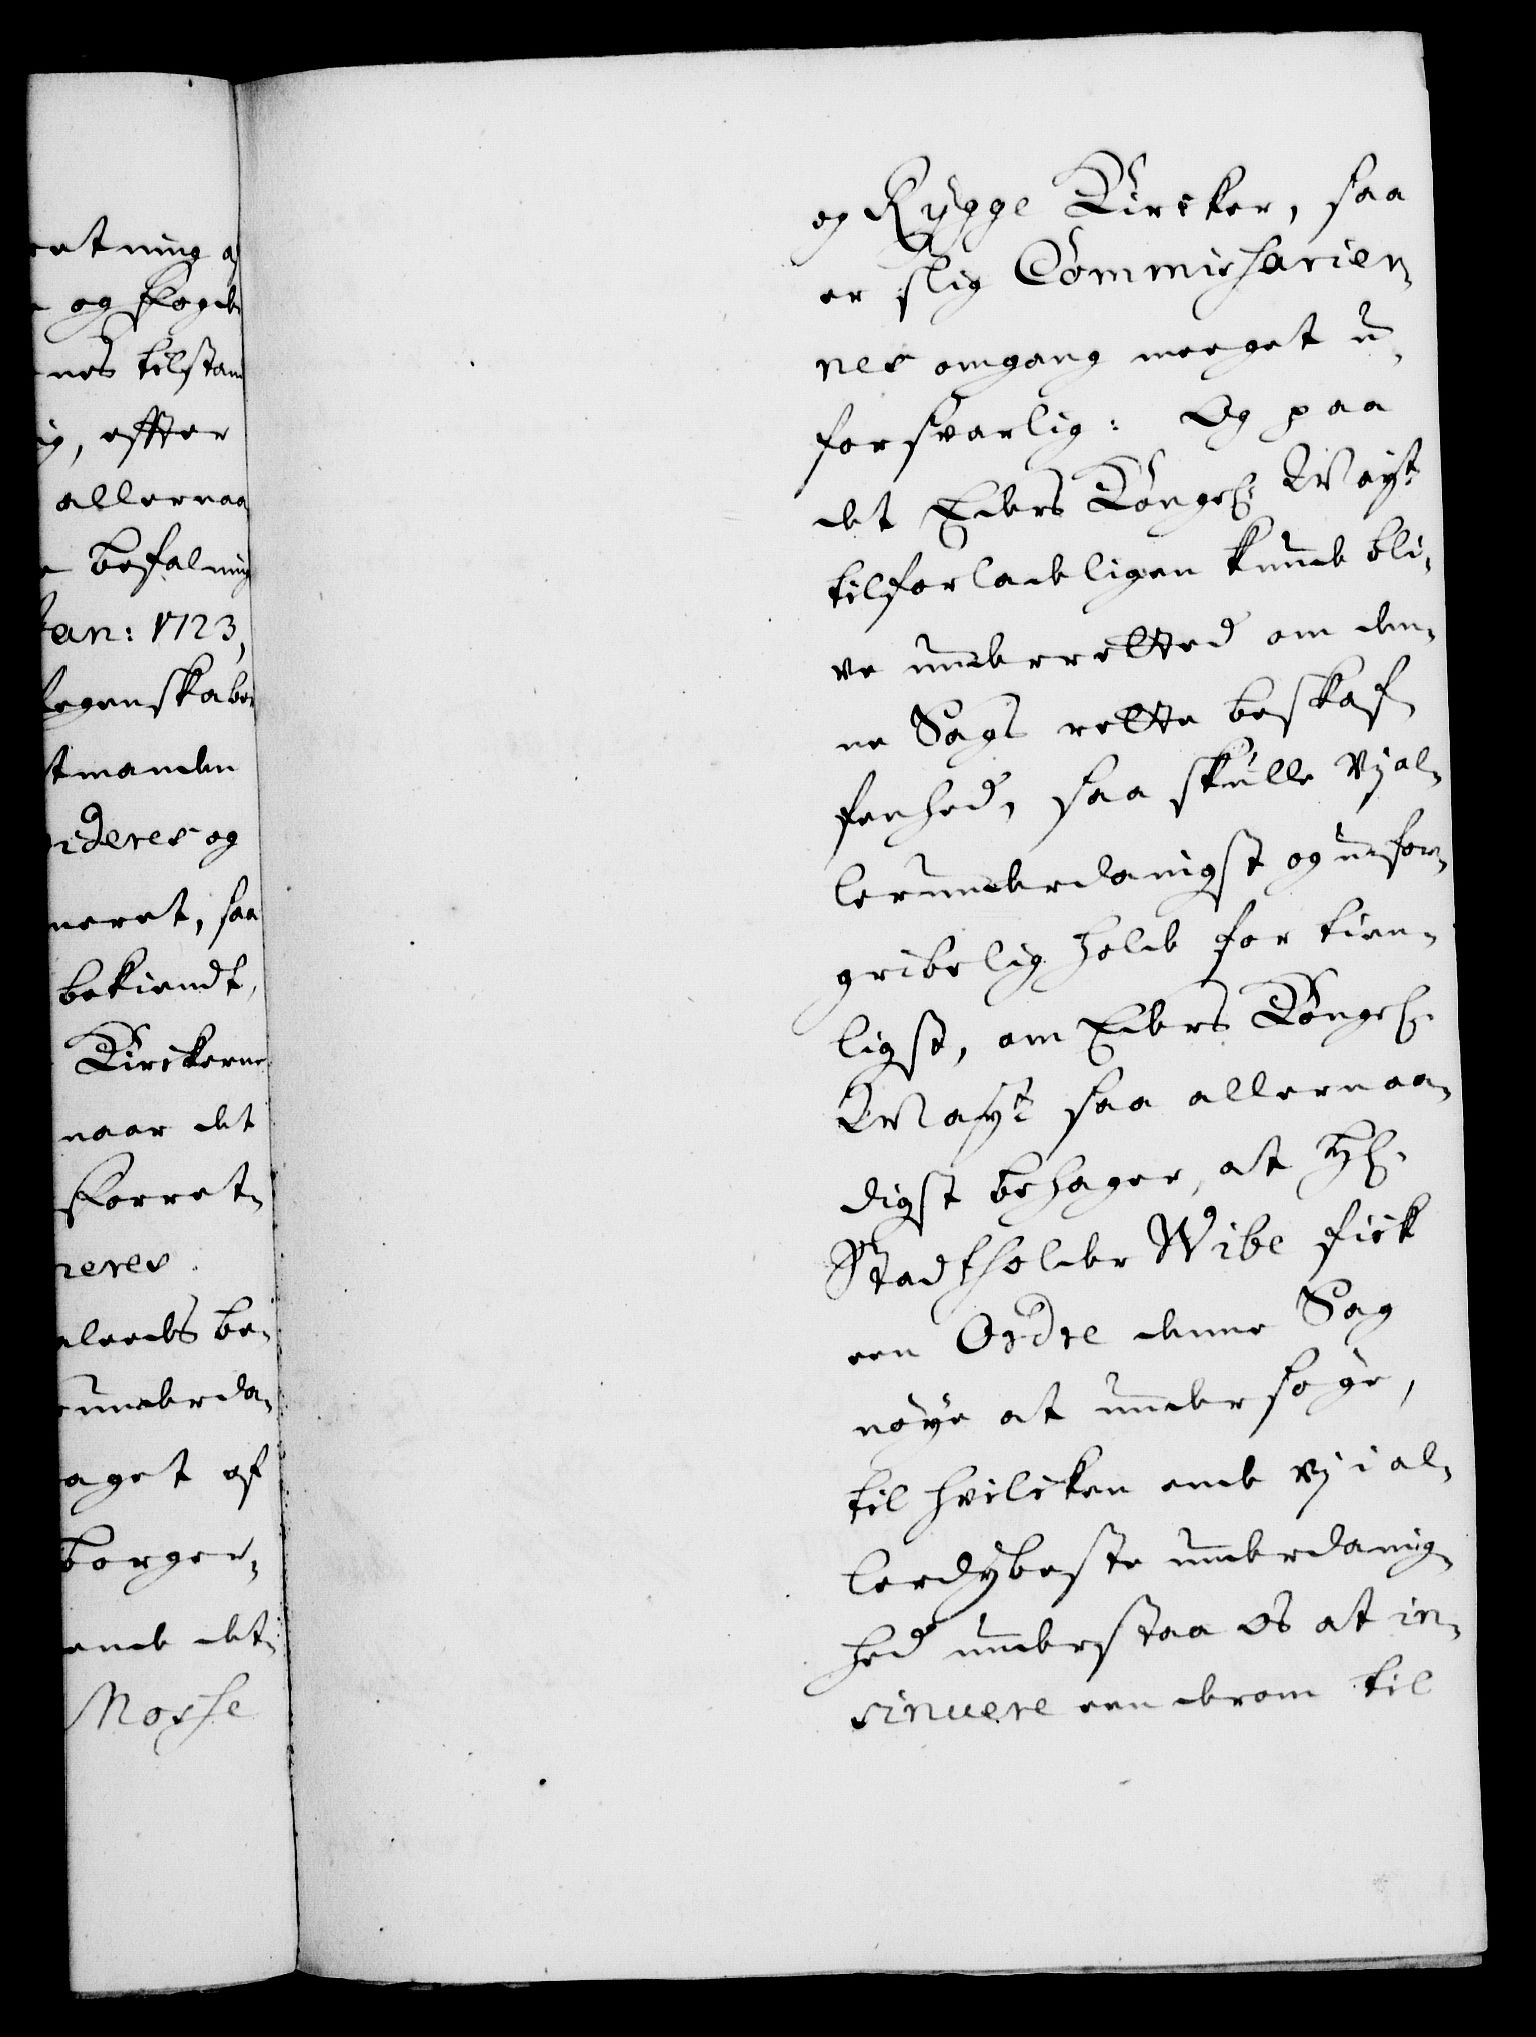 retning af
og Fogde
nes tilstand
ig, effter
allernaa
befalning
Jan: 1723,
egenskaber
tmanden
ideres og
neret, saa
bekiendt,
Kirckerne
naar det
Forret-
neres.
aleeds be-
underda-
aget af
borger-
ende det
Mosse
og Rygge Kircker, saa
er slig Commissarier-
nes omgang meeget u-
forsvarlig: Og paa
det Eders Kongel: Mayt:
tilforladeligen kunde bli-
ve underretted om den-
ne Sags rette beskaf-
fenhed, saa skulle vj al-
lerunderdanigst og ufor-
gribelig holde for tien-
ligst, om Eders Kongel:
Mayt: saa allernaa-
digst behager, at Hl:
Stadtholder Wibe fick
een Ordre denne Sag
nøye at undersøge,
til hvilcken ende vj i al-
lerdybeste underdanig-
hed understaa os at in-
sinuere een derom til